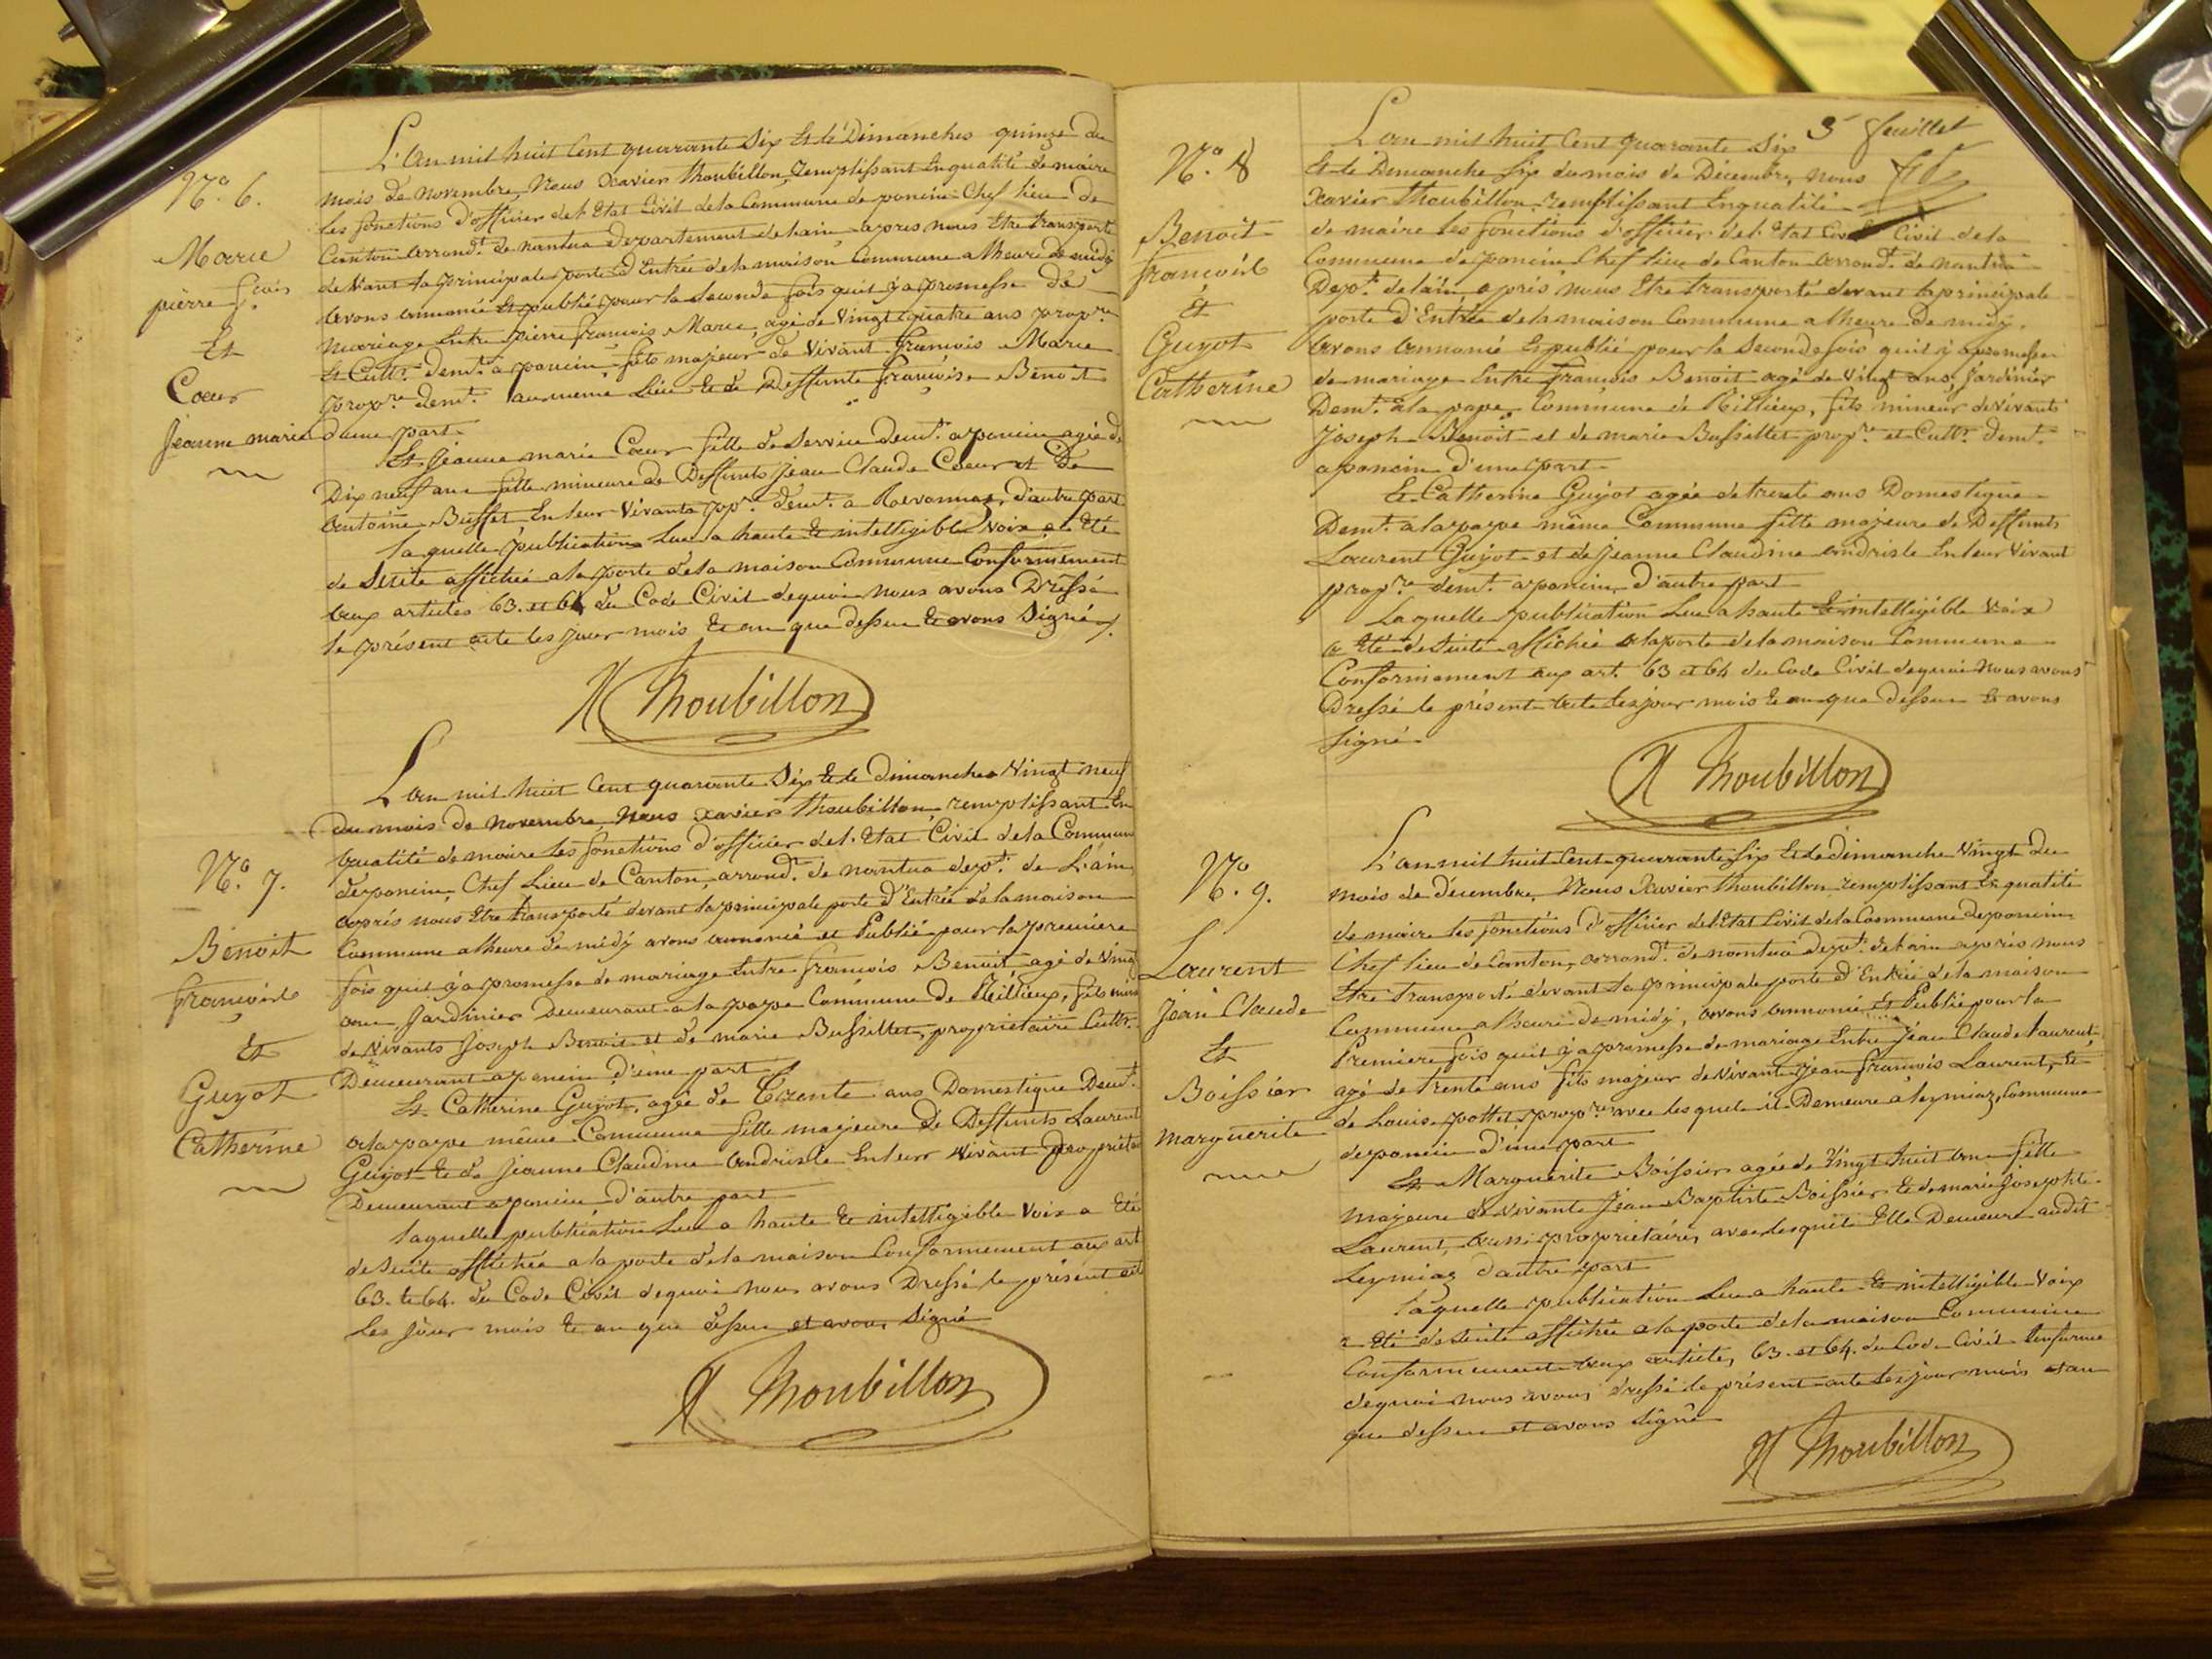 N.° 6.
Marie
pierre f.çois
Et
Cœur
Jeanne marie
L'an mil huit Cent quarante Six Et le Dimanche quinze du
mois de novembre, Nous Xavier Thoubillon, Remplissant En qualité de maire
les fonctions d'officier de l'Etat Civil de la Commune de poncin Chef lieu de
Canton arrond.t de nantua département de l'ain, après nous Etre transporté
devant la principale porte d'Entrée de la maison Commune a lheure de midy
avons annoncé Et publié pour la Seconde fois quil y a promesse de
mariage Entre pierre françois Marie, agé de Vingt quatre ans prop.re
Et Cult.r dem.t a poncin, fils majeur de Vivant françois Marie
prop.re dem.t au même Lieu Et de Deffunte françoise Benoit
d'une part
Et Jeanne marie Cœur fille de Service dem.t a poncin agée de
Dix neuf ans fille mineure de Deffunts Jean Claude Cœur et De
antoine Buffet En leur Vivants pp.re dem.t a Revonnas, d'autre part
laquelle publication Lue a haute Et intelligible Voix a Eté
de Suite affichée a la porte de la maison Commune Conformement
aux articles 63. et 64 du Code Civil dequoi nous avons Dressé
le présent acte les jour mois Et an que dessus Et avons Signé
X Thoubillon
N.° 7.
Benoit
françois
Et
Guyot
Catherine
L'an mil huit Cent quarante Six Et le dimanche Vingt neuf
du mois de novembre, Nous Xavier Thoubillon, remplissant En
qualité de maire les fonctions d'officier de l'Etat Civil de la Commune
de poncin, Chef Lieu de Canton, arrond.t de nantua dep.t de L'ain,
après nous Etre transporté devant la principale porte d'Entrée de la maison
Commune a lheure de midy avons annoncé et Publié pour la première
fois quil y a promesse de mariage Entre françois Benoit agé de Vingt
ans Jardinier Demeurant a la pape Commune de Rillieux, fils mineur
de Vivants Joseph Benoit et de marie Bussillet, propriétaire Cult.r
Demeurant a poncin d'une part
Et Catherine Guyot, agée de Trente ans Domestique Dem.t
a la pape même Commune fille majeure de Deffunts Laurent
Guyot Et de Jeanne Claudine andriste En leur Vivant propriétaire
Demeurant a poncin, d'autre part
laquelle publication Lue a haute Et intelligible Voix a Eté
de Suite affichée a la porte de la maison Conformement aux art
63. Et 64. du Code Civil dequoi nous avons Dressé le présent acte
Les jour mois Et an que dessus et avons Signé
X Thoubillon
3e feuillet
N.° 8
Benoit
françois
Et
Guyot
Catherine
L'an mil huit Cent quarante Six
Et le Dimanche Six du mois de Décembre, nous
Xavier Thoubillon remplissant En qualité
de maire les fonctions d'officier de l'Etat Civil Civil de la
Commune de poncin Chef lieu de Canton arrond.t de nantua
Dep.t de l'ain après nous Etre transporté devant la principale
porte d'Entrée de la maison Commune a lheure de midy.
avons annoncé Et publié pour la Seconde fois quil y a promesse
de mariage Entre françois Benoit agé de Vingt ans, Jardinier
Dem.t a la pape, Commune de Rillieux, fils mineur de Vivants
Joseph Benoit et de marie Bussillet prop.re et Cult.r dem.t
a poncin d'une part
Et Catherine Guyot agée de trente ans Domestique
Dem.t a la pape même Commune fille majeure de Deffunts
Laurent Guyot et de Jeanne Claudine andriste En leur Vivant
prop.re dem.t a poncin, d'autre part
Laquelle publication Lue a haute Et intelligible Voix
a Eté de Suite affichée a la porte de la maison Commune
Conformement aux art. 63 et 64 du Code Civil dequoi Nous avons
Dressé le présent acte Les jour mois Et an que dessus Et avons
Signé
X Thoubillon
N.° 9.
Laurent
Jean Claude
Et
Boissier
marguerite
L'an mil huit Cent quarante Six Et le dimanche Vingt du
mois de décembre, Nous Xavier Thoubillon remplissant En qualité
de maire les fonctions d'officier de l'Etat Civil de la Commune de poncin
Chef lieu de Canton, arrond.t de nantua dep.t de l'ain après nous
Etre transporté devant la principale porte d'Entrée de la maison
Commune a lheure de midy, avons annoncé et Publié pour la
Premiere fois quil y a promesse de mariage Entre Jean Claude Laurent,
agé de trente ans fils majeur de Vivant Jean françois Laurent, Et
de Louise pottet, prop.re avec lesquels il Demeure a leymiaz, Commune
de poncin d'une part
Et Marguerite Boissier agée de Vingt huit ans fille
majeure de Vivants Jean Baptiste Boissier Et de marie Josephte
Laurent, aussi propriétaires, avec lesquels Elle Demeure audit
Leymiaz d'autre part
laquelle publication Lue a haute Et intelligible Voix
a Eté de Suite affichée a la porte de la maison Commune
Conformement aux articles, 63. et 64. du Code Civil
dequoi nous avons dressé le présent acte Les jour mois et an
que dessus et avons Signé
X Thoubillon